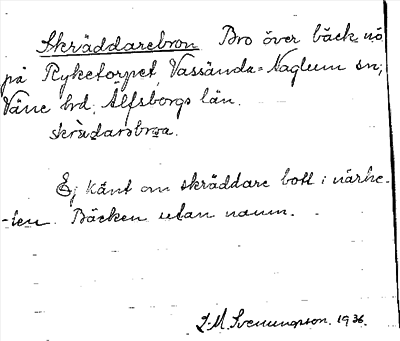 Skräddarebron Bro över bäck nö
på Ryketorpet, Vassända-Naglum sn,
Väne hd, Älfsborgs län.
skrädarsbroa.
Ej känt om skräddare bott i närhe-
-ten. Bäcken utan namn.
J.M. Svenungson. 1936.